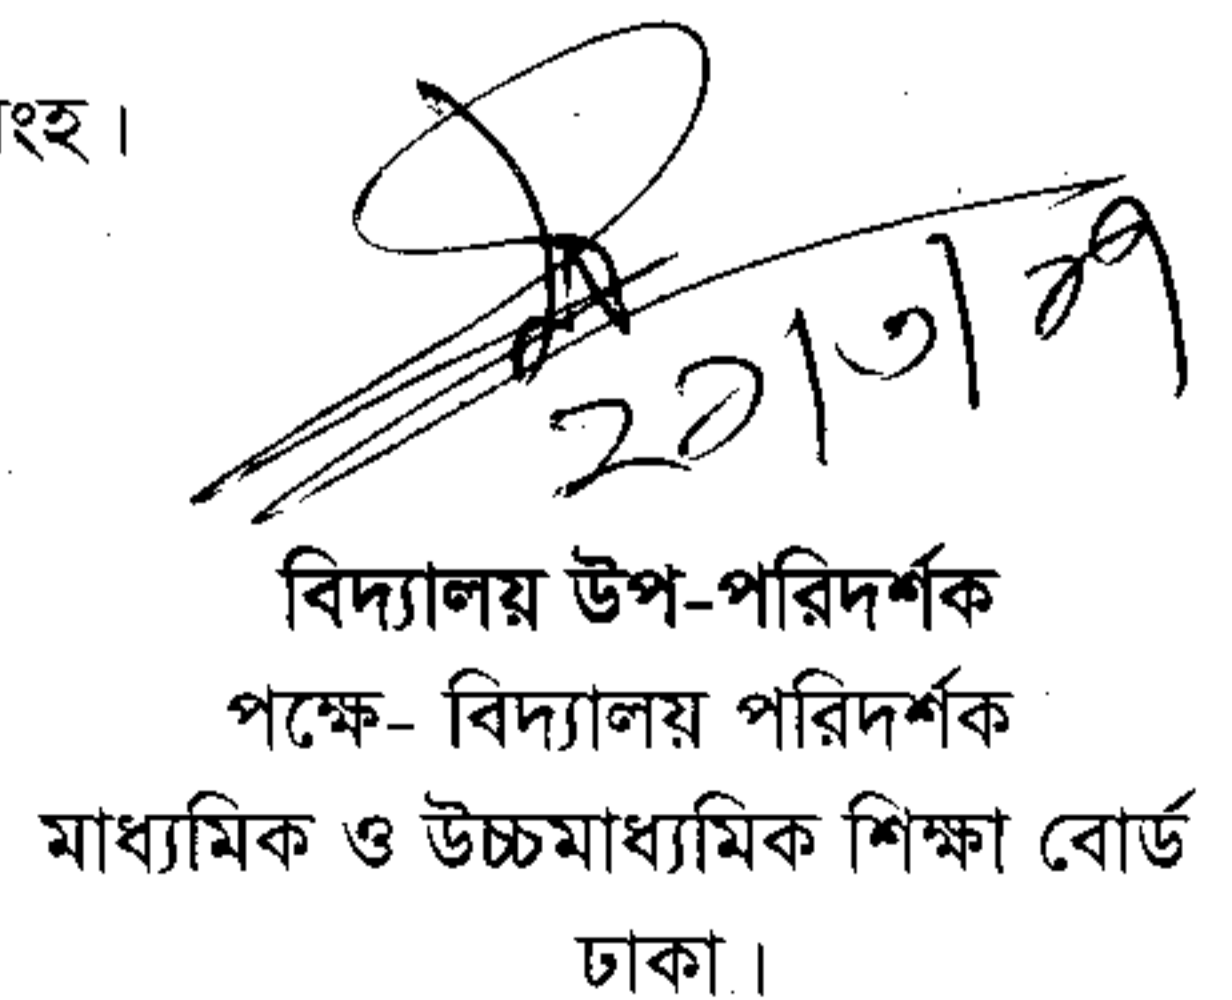 ংহ।
২৭।৩।৯৭
বিদ্যালয় উপ-পরিদর্শক
পক্ষে- বিদ্যালয় পরিদর্শক
মাধ্যমিক ও উচ্চমাধ্যমিক শিক্ষা বোর্ড
ঢাকা।